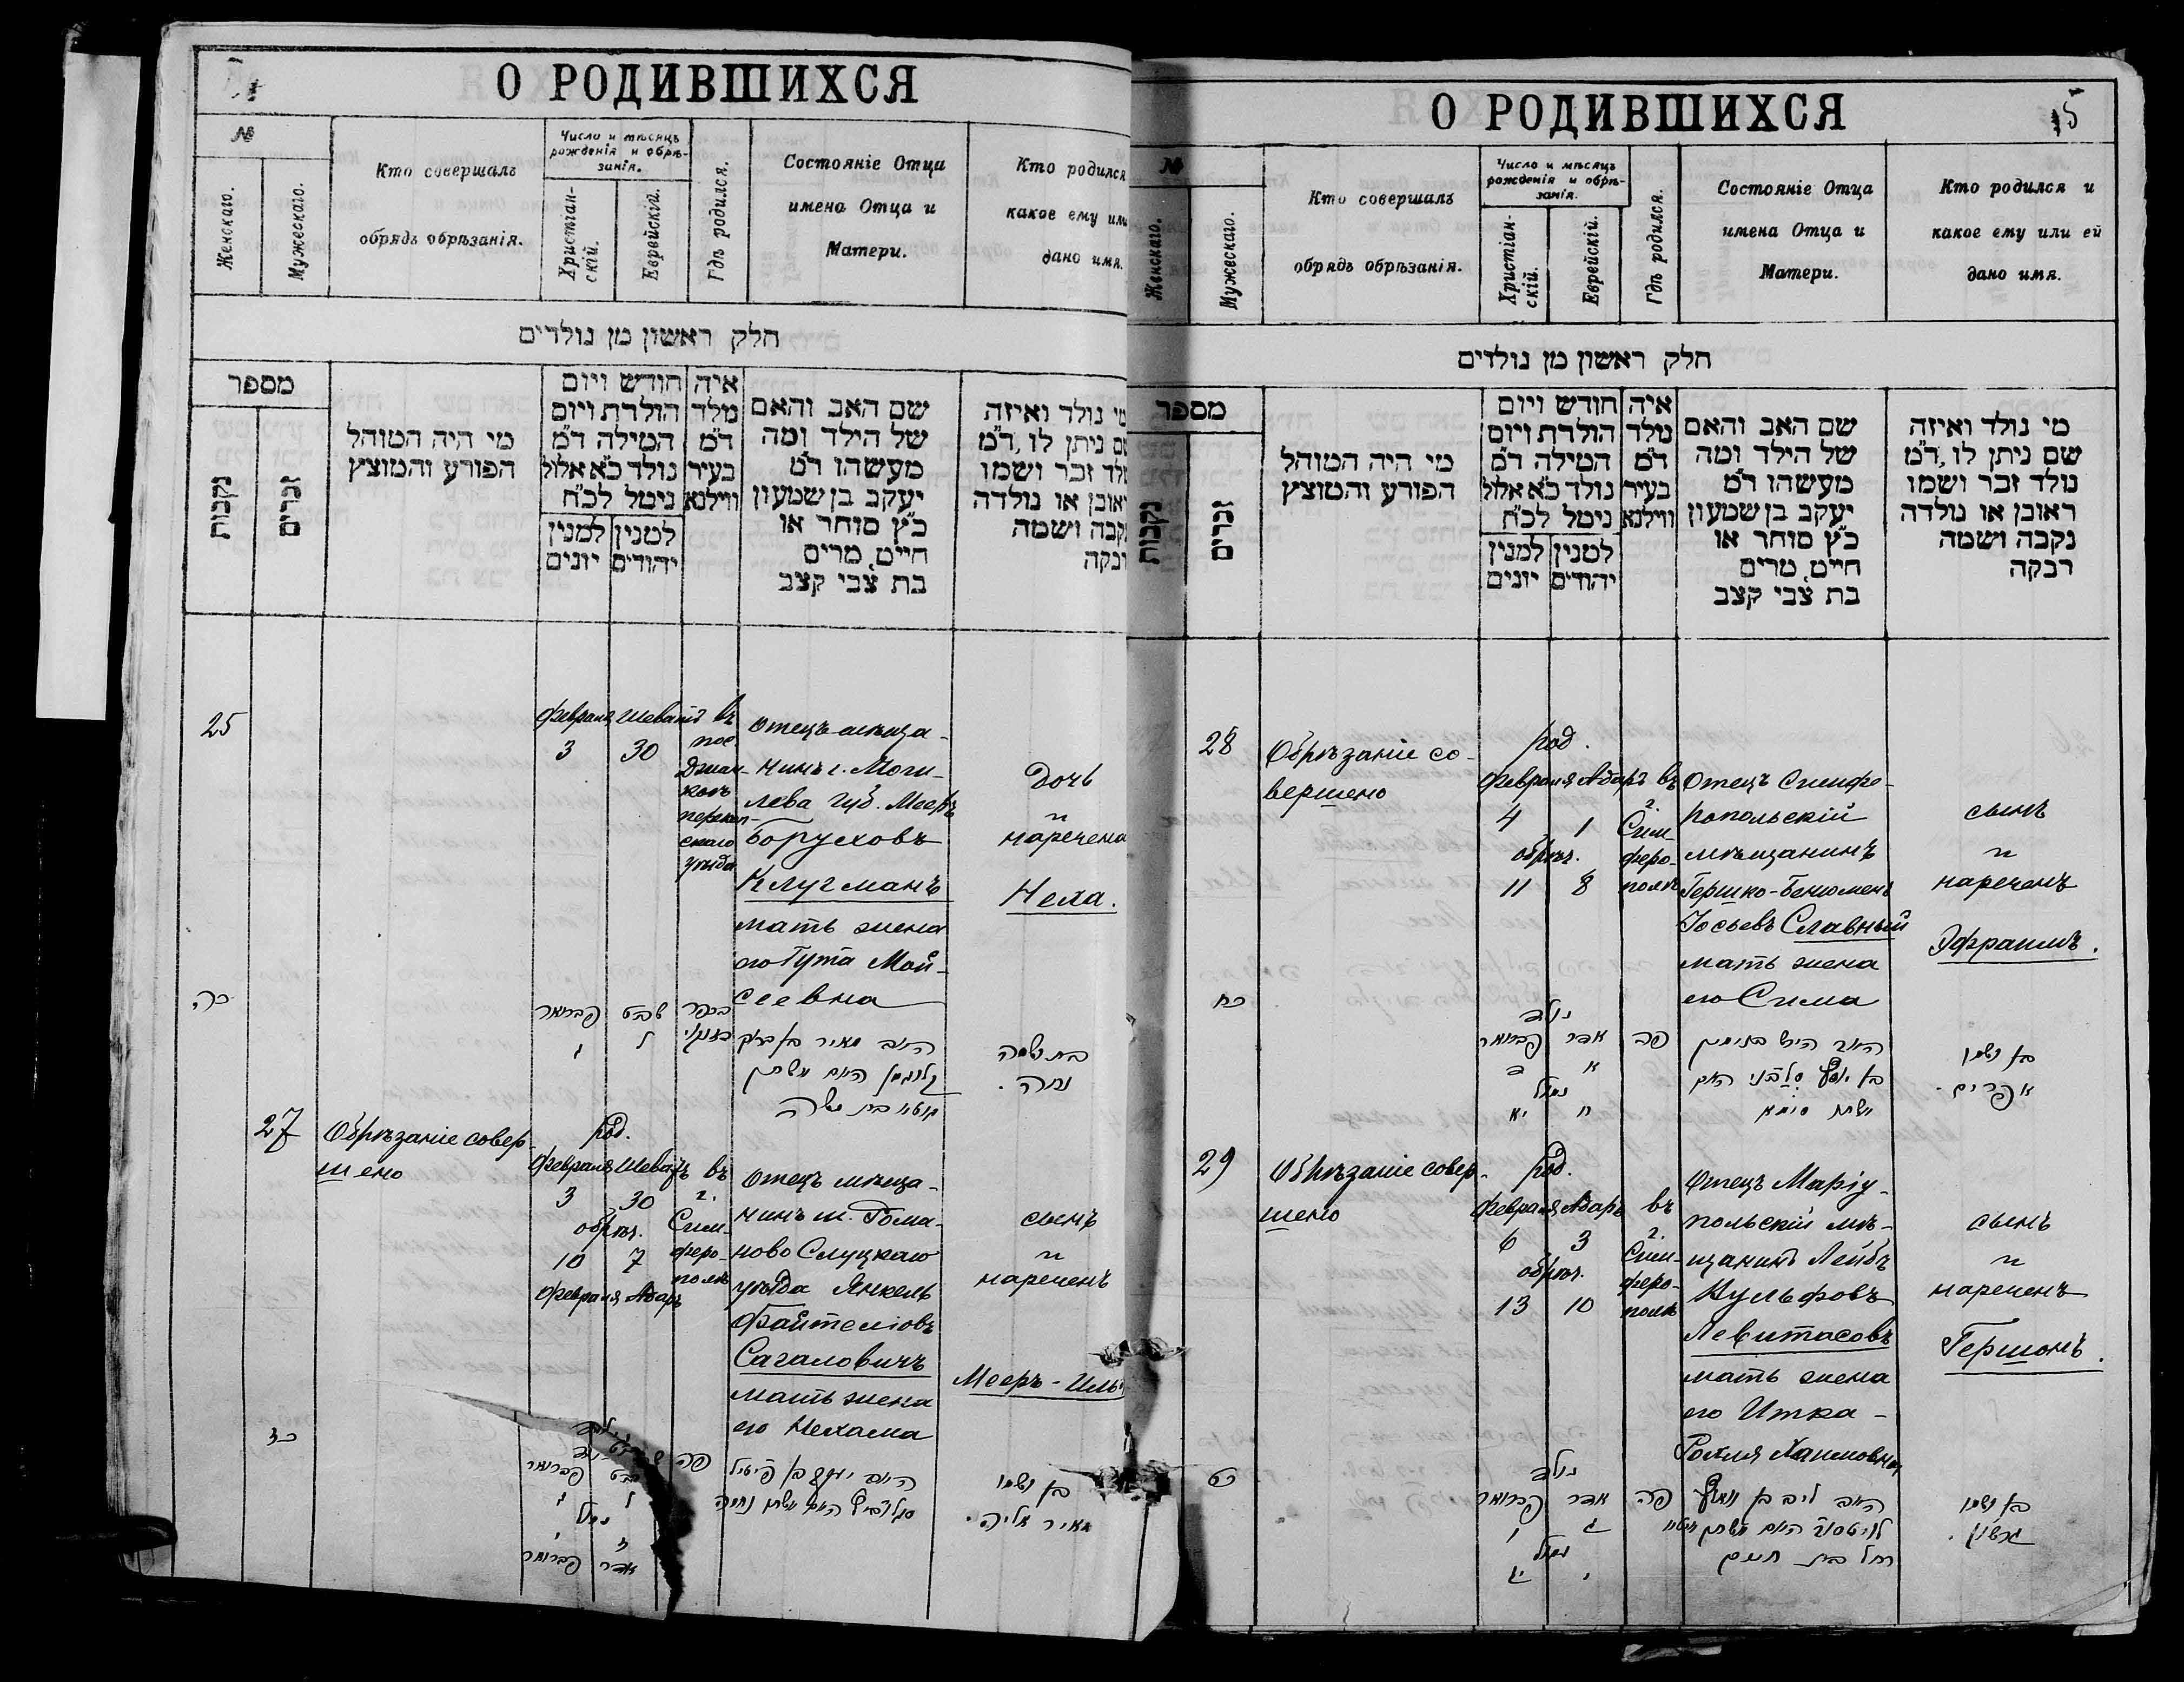 О РОДИВШИХСЯ
№
Женскаго.
Мужескаго.
Кто совершалъ
обрядъ обрѣзанія.
Число и мѣсяцъ
рожденія и обрѣ-
занія.
Христіан-
скій.
Еврейскій.
Гдѣ родился.
Состояніе Отца
имена Отца и
Матери.
Кто родился
какое ему или
дано имя.
חלק ראשון מן נולדים
מספר
נקבות
זכרים
מי היה המוהל
הפורע והמוצץ
חודש ויום
הולדת ויום
המילה ד״מ
נולד כ״א אלול
ניטל לכ״ח
למנין
יונים
למנין
יהודים
איה
מלד
ד״מ
בעיר
ווילנא
שם האב והאם
של הילד ומה
מעשהו ד״מ
יעקב בן שמעון
כ״ץ סוחר או
חייט, מרים
בת צבי קצב
נולד ואיזה
ניתן לו, ד״מ
זכר ושמו
או נולדה
ושמה
25
Февраля Шеватъ
3 30
въ
пос.
Джан-
кой
переkоп-
скаго
уѣзда
Отецъ мѣща-
нинъ г. Моги-
лева губ. Мееръ
Боруховъ
Клугманъ
мать жена
его Гута Мой-
сеевна
Дочь
и
наречена
Неха.
כה
פברואר
ג
שבט
ל
האב מאיר בן ברוך
קלוגמן האם אשתו
בת משה
בת ושמה
נחה.
27
Обрѣзаніе совер-
шено
род.
Февраля Шеватъ
3 30
обрѣз.
10 7
Февраля Адаръ
въ
г.
Сим-
феро-
полѣ
Отецъ мѣща-
нинъ м. Рома-
ново Слуцкаго
уѣзда Янкель
Файтелiовъ
Сагаловичъ
мать жена
его Нехама
сынъ
и
нареченъ
Мееръ-Илья
כז
פברואר
ג
ל
נמול
י
ז
פברואר
אדר
פה
האב יעקב בן פייטיל
סגלוביץ האם אשתו נחמה
בן ושמו
מאיר אליה.
О РОДИВШИХСЯ
15
№
Женскаго.
Мужескаго.
Кто совершалъ
обрядъ обрѣзанія.
Число и мѣсяцъ
рожденія и обрѣ-
занія.
Христіан-
скій.
Еврейскій.
Гдѣ родился.
Состояніе Отца
имена Отца и
Матери.
Кто родился и
какое ему или ей
дано имя.
חלק ראשון מן נולדים
מספר
נקבות
זכרים
מי היה המוהל
הפורע והמוצץ
חודש ויום
הולדת ויום
המילה ד״מ
נולד כ״א אלול
ניטל לכ״ח
למנין
יונים
למנין
יהודים
איה
מלד
ד״מ
בעיר
ווילנא
שם האב והאם
של הילד ומה
מעשהו ד״מ
יעקב בן שמעון
כ״ץ סוחר או
חייט, מרים
בת צבי קצב
מי נולד ואיזה
שם ניתן לו, ד״מ
נולד זכר ושמו
ראובן או נולדה
נקבה ושמה
רבקה
28
Обрѣзаніе со-
вершено
род.
Февраля Адаръ
4 1
обрѣз.
11 8
въ
г.
Сим-
феро-
полѣ
Отецъ Симфе-
ропольскій
мѣщанинъ
Гершко-Беніоменъ
Іосьевъ Славный
мать жена
его Сима
сынъ
и
нареченъ
Эфраимъ.
כח
נולד
פברואר
ד
אדר
א
נמול
יא
ח
פה
האב הירש בנימין
בן יוסף סלבני האם
אשתו סימא
בן ושמו
אפרים.
29
Обрѣзаніе совер-
шено
род.
Февраля Адаръ
6 3
обрѣз.
13 10
въ
г.
Сим-
феро-
полѣ
Отецъ Маріу-
польскій мѣ-
щанинъ Лейбъ
Вульфовъ
Левитасовъ
мать жена
его Итка-
Рохля Хаимовна
сынъ
и
нареченъ
Гершонъ.
כט
נולד
פברואר
ו
אדר
ג
נמול
יג
י
פה
האב ליב בן וואלף
לויטסוב האם אשתו איטא
רחל בת חיים
בן ושמו
גרשון.